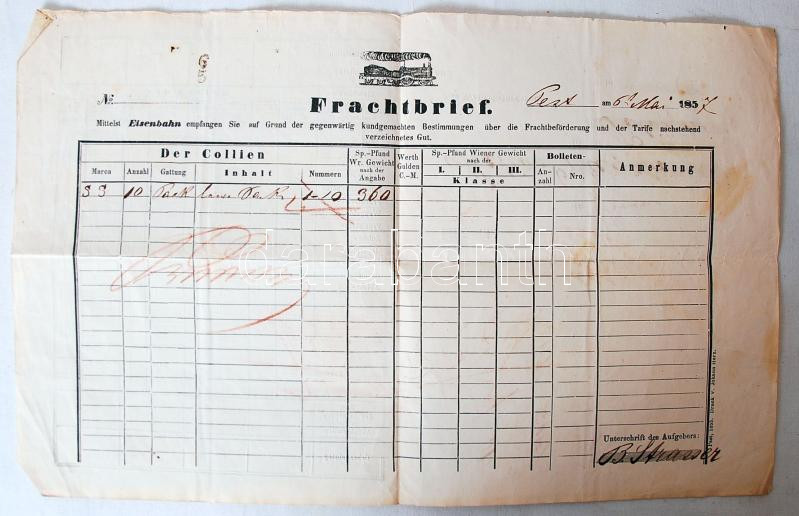 №
Frachtbrief.
Pest am 6t Mai 1857
Mittelst Eisenbahn empfangen Sie auf Grund der gegenwärtig kundgemachten Bestimmungen über die Frachtbeförderung und der Tarife nachstehend
verzeichnetes Gut.
Der Collien
Marca Anzahl Gattung Inhalt Nummern
Sp.-Pfund
Wr. Gewicht
nach der
Angabe
Werth
Gulden
C.-M.
Sp.-Pfund Wiener Gewicht
nach der
I. II. III.
Klasse
Bolleten-
An-
zahl
Nro.
Anmerkung
S S 10 Pack 1-10 360
darabanth
Unterschrift des Aufgebers:
B Strasser
Druck v. Johann Herz.